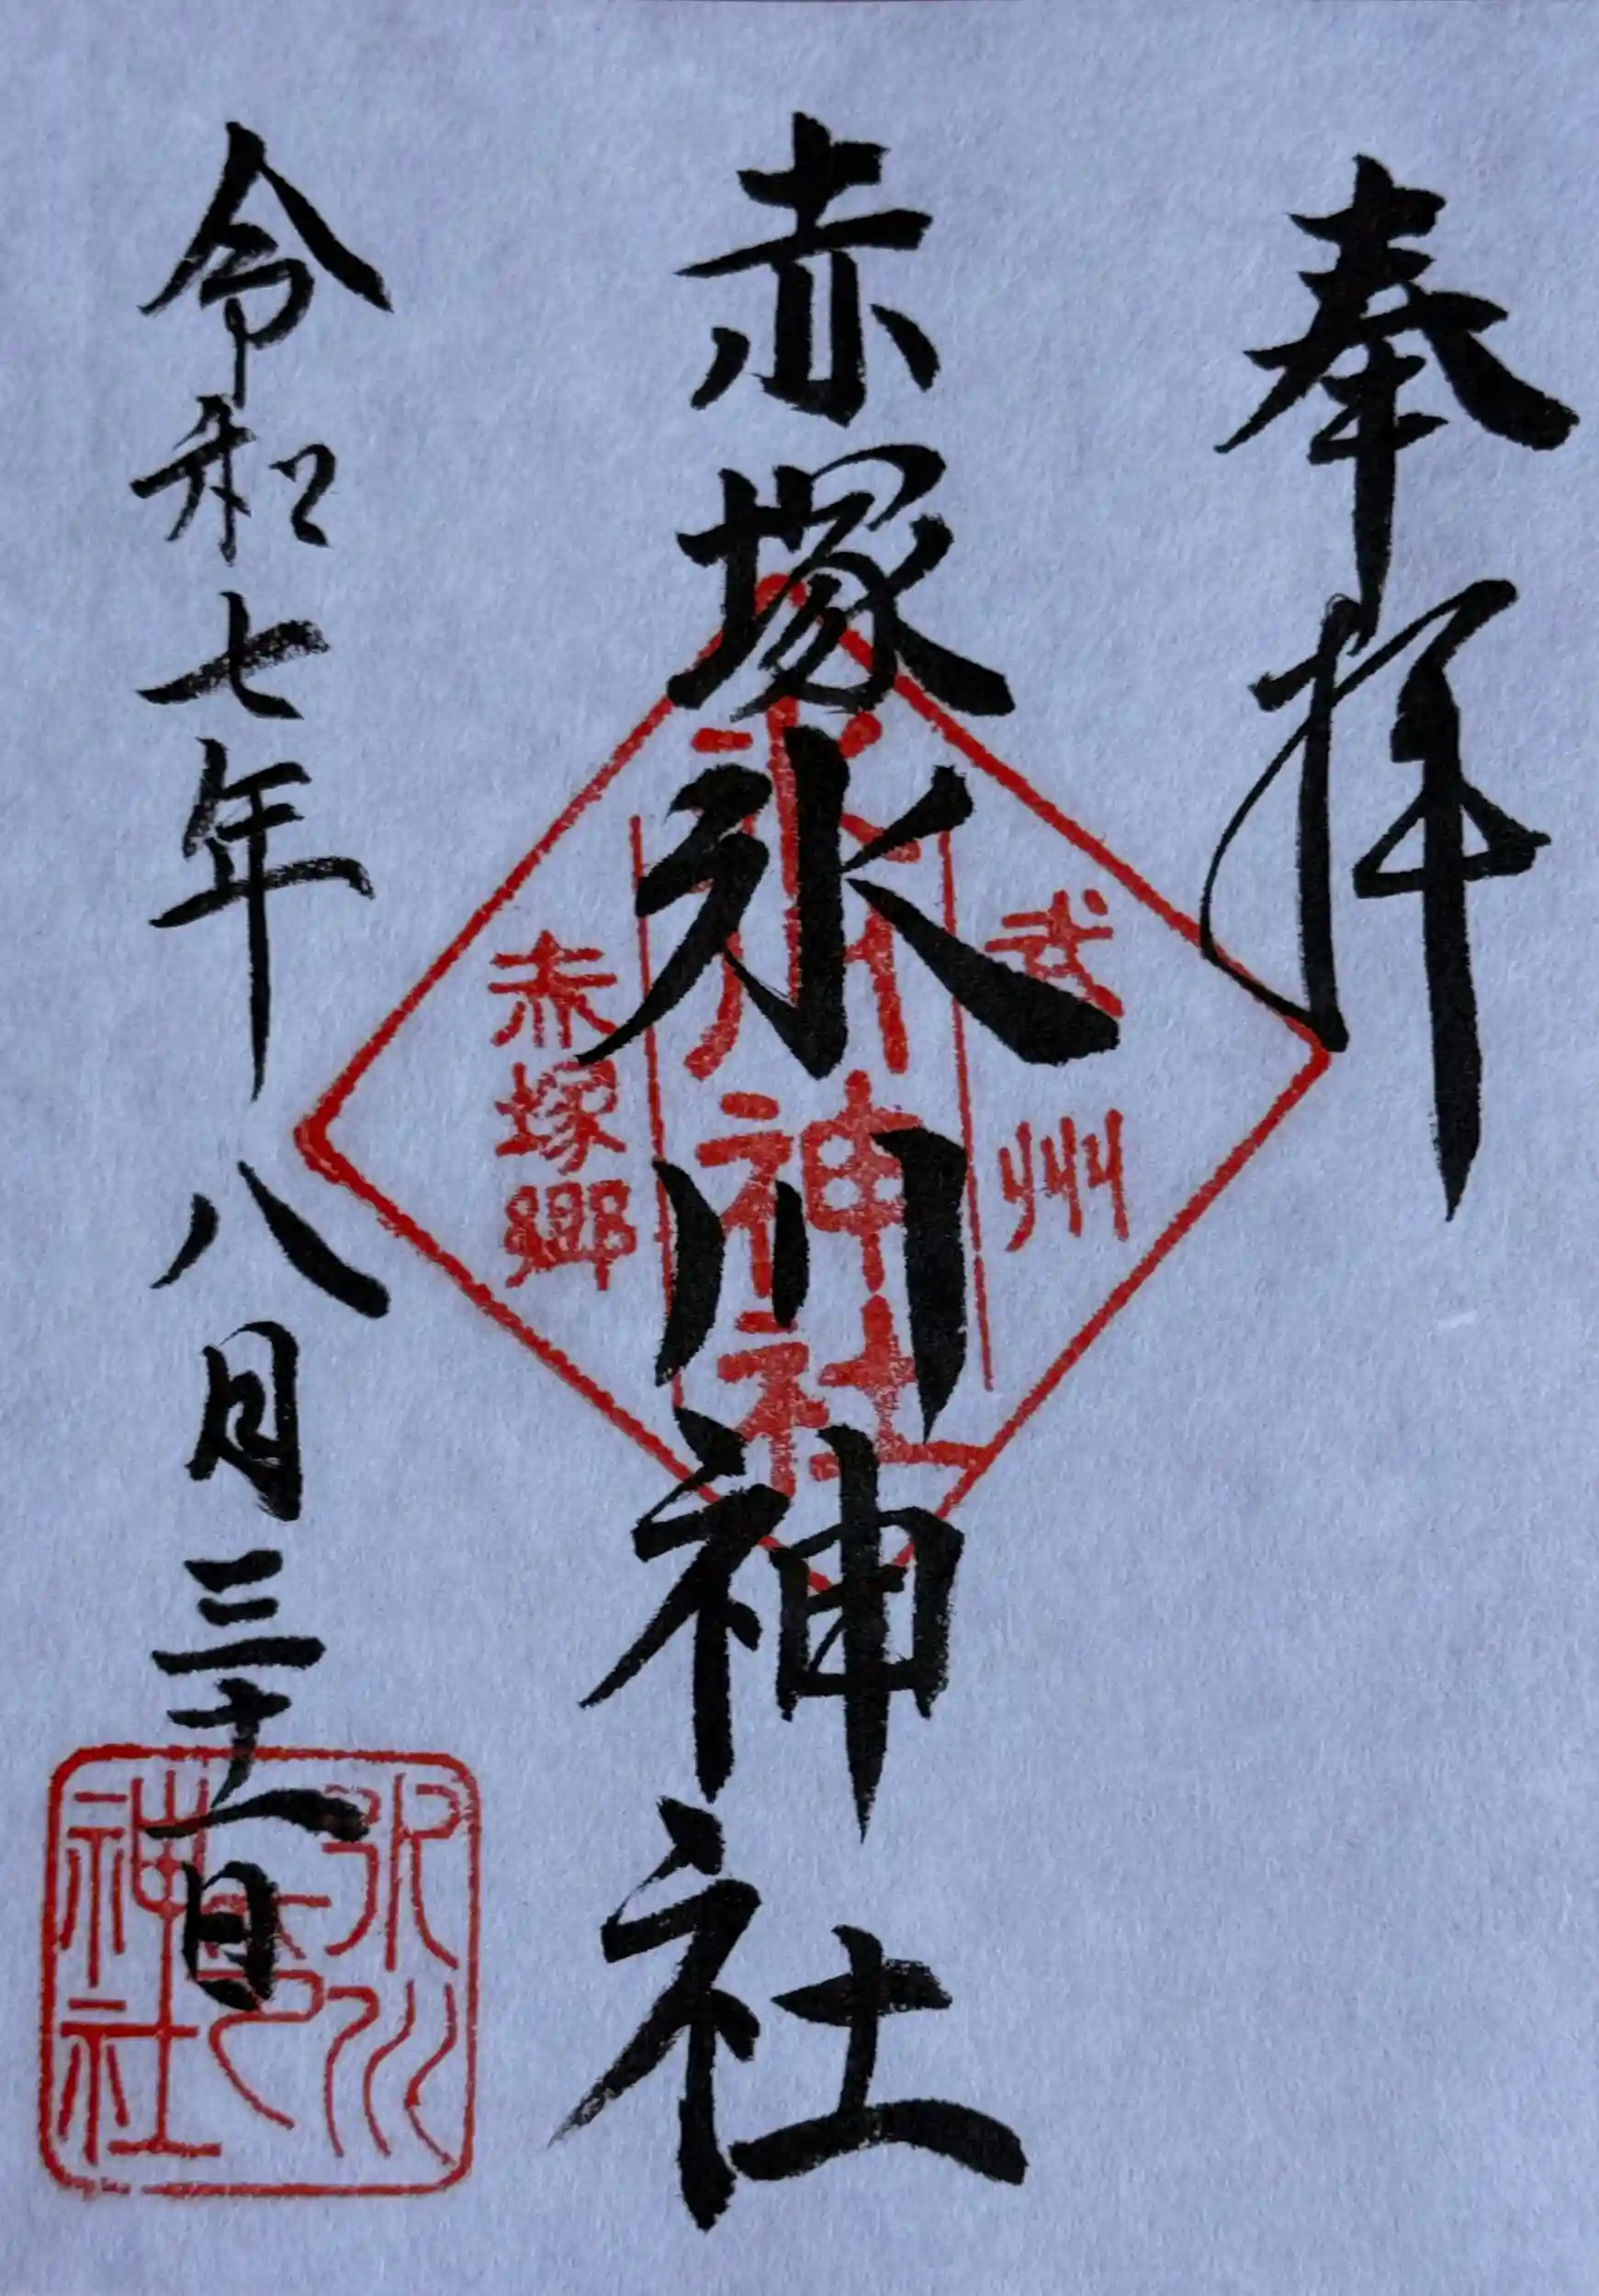 奉拝
武州
赤塚氷川神社
氷川神社
赤塚郷
令和七年八月三十一日
氷川
神社